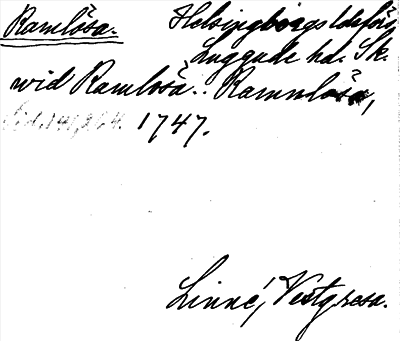 Ramlösa. Helsingborgs ldsförs.
Luggude hd. Sk.
wid Ramlosa.. Ramnlösa,
Sid. 141, 264. 1747.
Linné, Vestgresa.